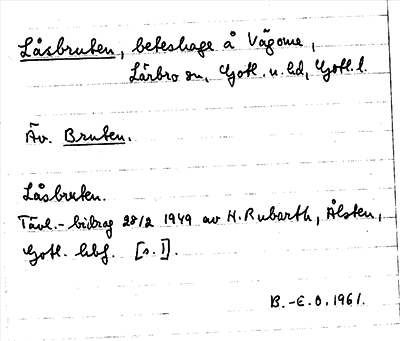 Låsbruten, beteshage å Vägome,
Lärbro sn, Gotl. n. hd, Gotl. l.
Äv. Bruten.
Låsbruten.
Tävl.-bidrag 28/2 1949 av H. Rubarth, Ålsten,
Gotl. hbf. [s. 1].
B.-E. O. 1961.